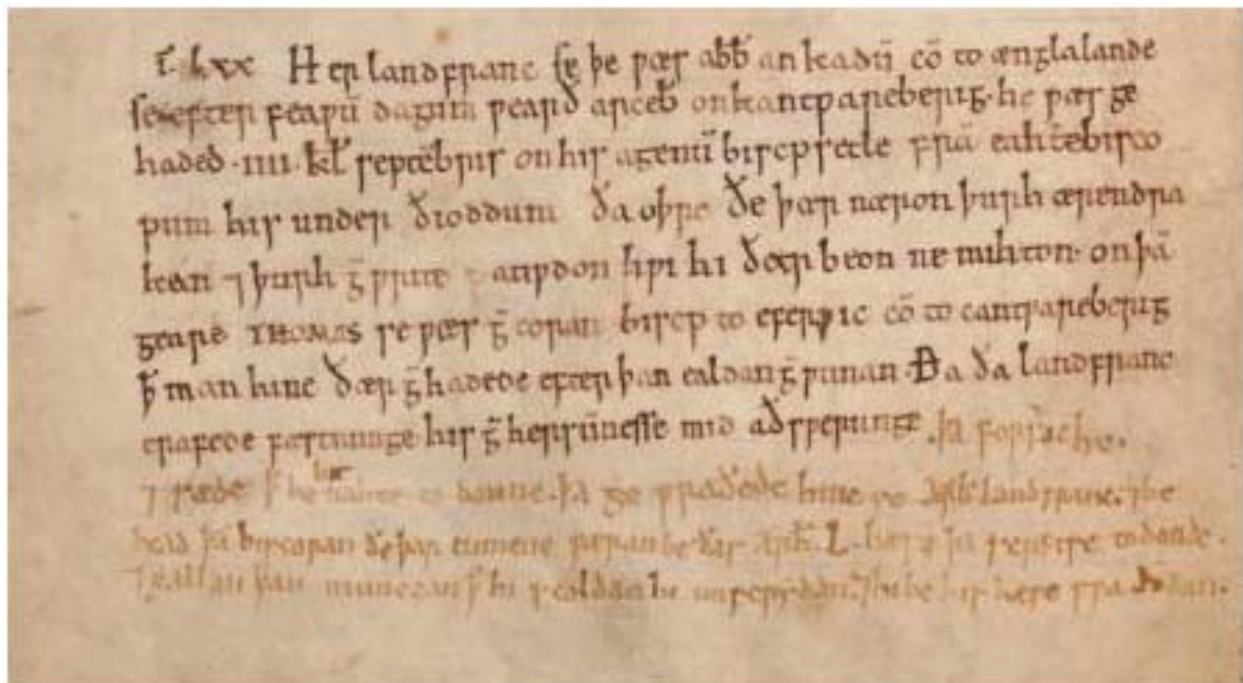 T̄ lxx Her landfranc se þe ƿæs abb̄ an kadū cō to ænglalande
se efter feaƿū dagum ƿearð arceb̄ on kantƿareberig· he ƿæs ge
haded ·iiii· kl̄ septēbris on his agenū biscpsetle frā eahtēbisco
pum his under ðioddum ða oþre ðe þær næron þurh ærendra
kan ⁊ þurh ḡƿrite atiƿdon hƿi hi ðær beon ne mihton· on þā
geare THOMAS se ƿæs ḡcoran biscp to eferƿic cō to cantƿareberig
ꝥ man hine ðær ḡhadede efter þan ealdan ḡƿunan· Ða ða landfranc
crafede fæstnunge his ḡhersūnesse mid aðsƿerunge· þa forsoc he·
⁊ sæde ꝥ he hit nahte to donne· þa ge ƿraðede hine se arb̄ landfranc· ⁊ be
bead þā biscopan ðe þar cumene ƿæran be ðas arb̄· L· hæse þa serfise to donde·
⁊ eallan þan munecan ꝥ hi scoldan hi unscrydan· ⁊ hi be his hæse sƿa dydan·